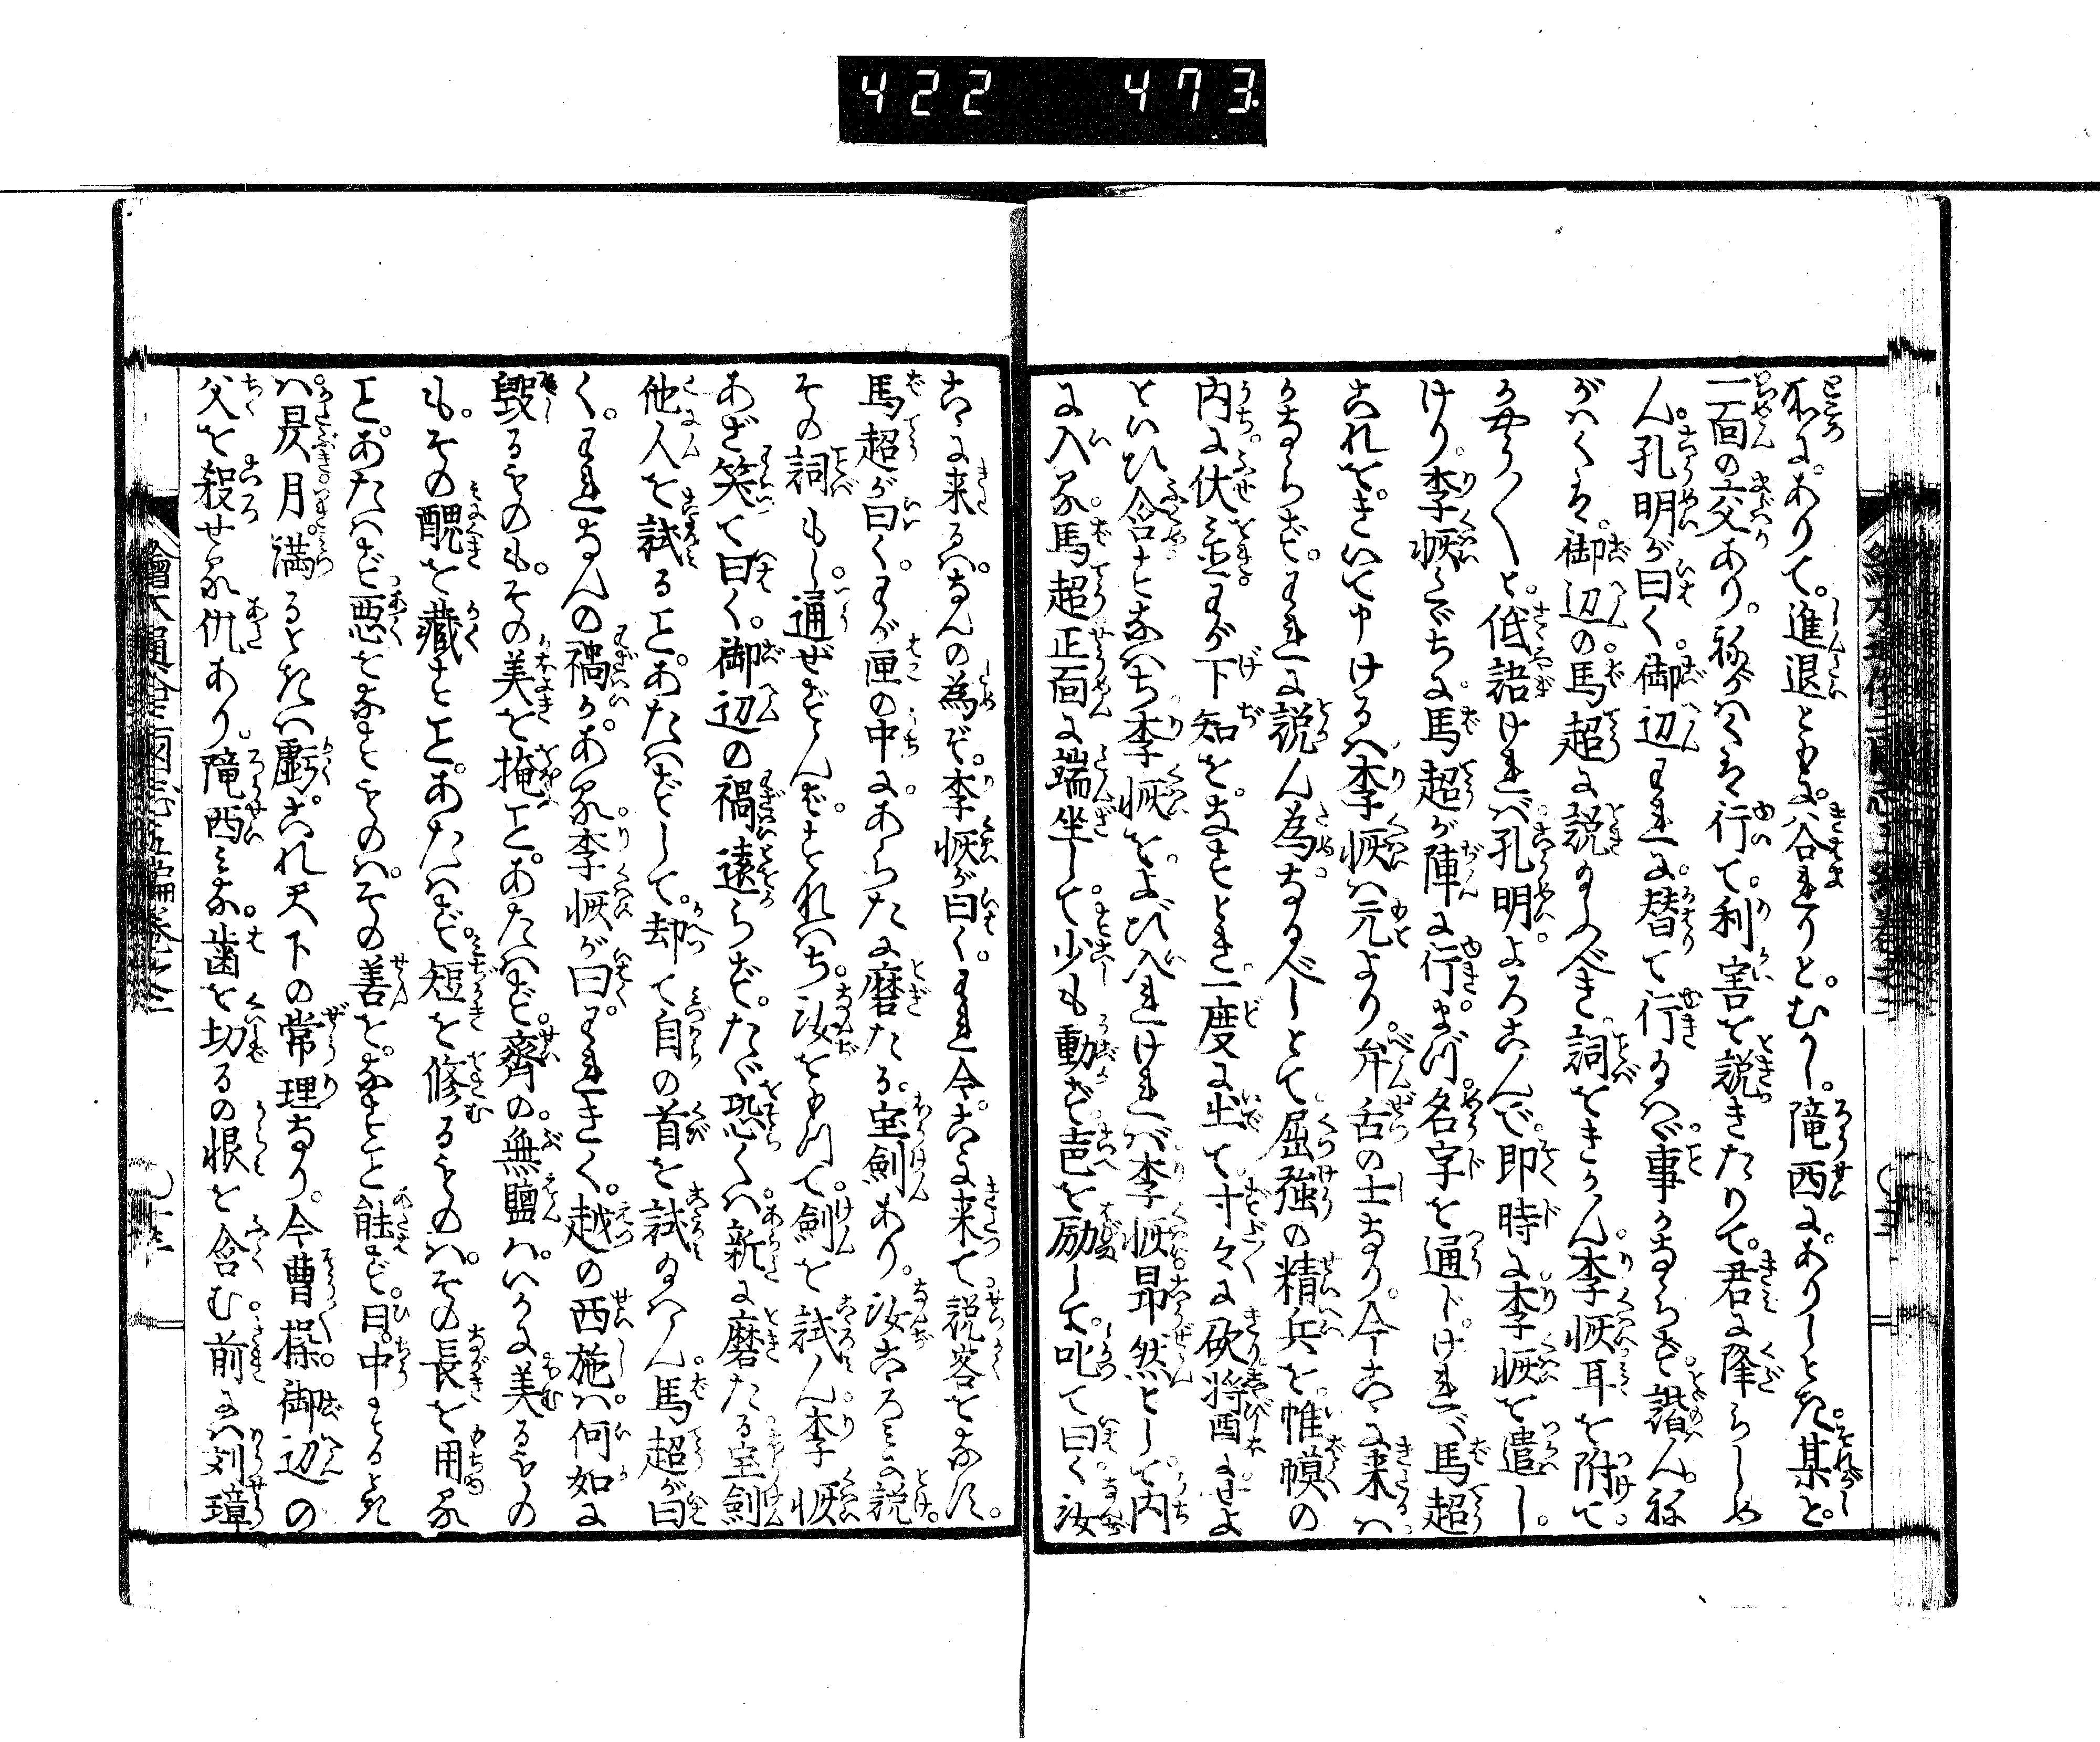 422 473
所にありて。進退ともに谷れりと。むかし。隴西にありしとき。某と。
一面の交あり。 ねがはくは行て。利害を説きたりて。君に降らしめ
ん。孔明が曰く。御辺われに替て行給はゞ。事かならず諧ん。ね
がはくは。御辺の馬超に説給ふべき詞をきかん。李恢耳を附て
かやう〳〵と。低語ければ。孔明よろこんで。即時に李恢を遣し
けり。李恢すでに。馬超が陣に行。まづ名字を通じければ。馬超
これをきいて申けるハ。李恢ハ元より。弁舌の士なり。今こゝに来るハ。
かならず。われに説ん為なるべしとて。屈強の精兵を。帷幕の
内に伏せ置。わが下知をなすとき。一度に出て。寸々に砍将酉にせよ
といひ含。すなハち李恢を。よび入れければ。李恢昂然として。内
に入る。馬超正面に端坐して。少も動ず。声を励して。叱て曰く。汝
こゝに来るハ。なんの為ぞ。李恢が曰く。われ今。こゝに来て。説客をなす。
馬超が曰く。わが匣の中に。あらたに磨たる。宝剣あり。汝こゝろみに説け。
その詞もし。通ぜずんば。すなハち。汝をもつて。剣を試ん。李恢
あざ笑て曰く。御辺の禍遠らず。たゞ恐くハ。新に磨たる宝剣
他人を試ることあたハずして。却て自の首を試給ハん。馬超が曰
く。われなんの禍かある。李恢が曰。われきく。越の西施ハ。何如に
毀るものも。その美を掩ことあたハず。齊の無鹽ハ。いかに美るもの
も。その醜を藏すことあたハず。短を修るものハ。その長を用る
ことあたハず。悪をなすものハ。その善をなすこと能ず。日中するとき
ハ昃。月満るときハ虧。これ天下の常理なり。今曹操。御辺の
父を殺せる仇あり。隴西ミな。歯を切るの恨を含む。前にハ刘璋
繪本通俗三國志五編巻之三